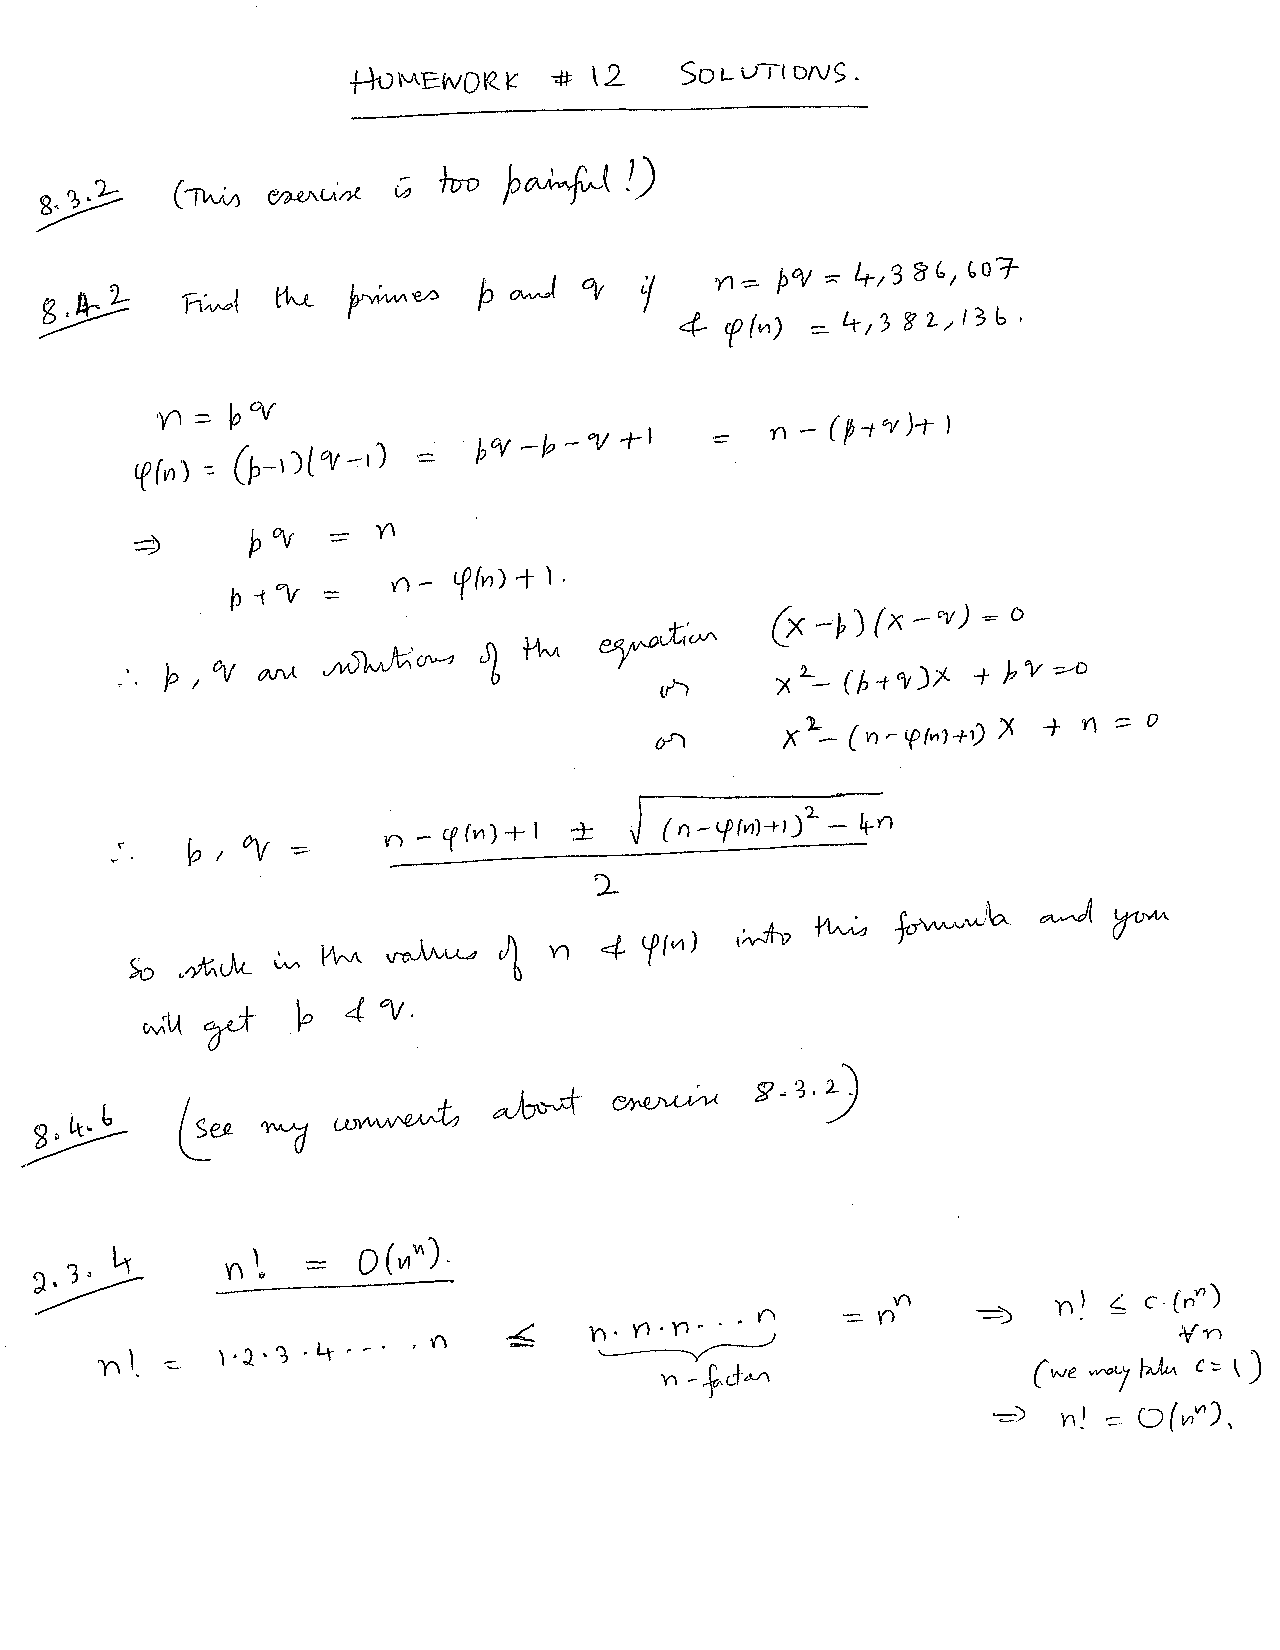 HOMEWORK # 12 SOLUTIONS.
8.3.2 (This exercise is too painful!)
8.4.2 Find the primes p and q if n = pq = 4,386,607
& φ(n) = 4,382,136.
n = pq
φ(n) = (p-1)(q-1) = pq-p-q+1 = n-(p+q)+1
⇒ pq = n
p+q = n-φ(n)+1.
∴ p, q are solutions of the equation (x-p)(x-q) = 0
or x²-(p+q)x + pq = 0
or x²-(n-φ(n)+1)x + n = 0
∴ p, q = n-φ(n)+1 ± √(n-φ(n)+1)² - 4n
2
So stick in the values of n & φ(n) into this formula and you
will get p & q.
8.4.6 (See my comments about exercise 8.3.2.)
2.3.4 n! = O(nⁿ).
n! = 1·2·3·4····.n ≤ n·n·n·...n = nⁿ ⇒ n! ≤ c·(nⁿ)
∀n
n-factors (we may take c=1)
⇒ n! = O(nⁿ).